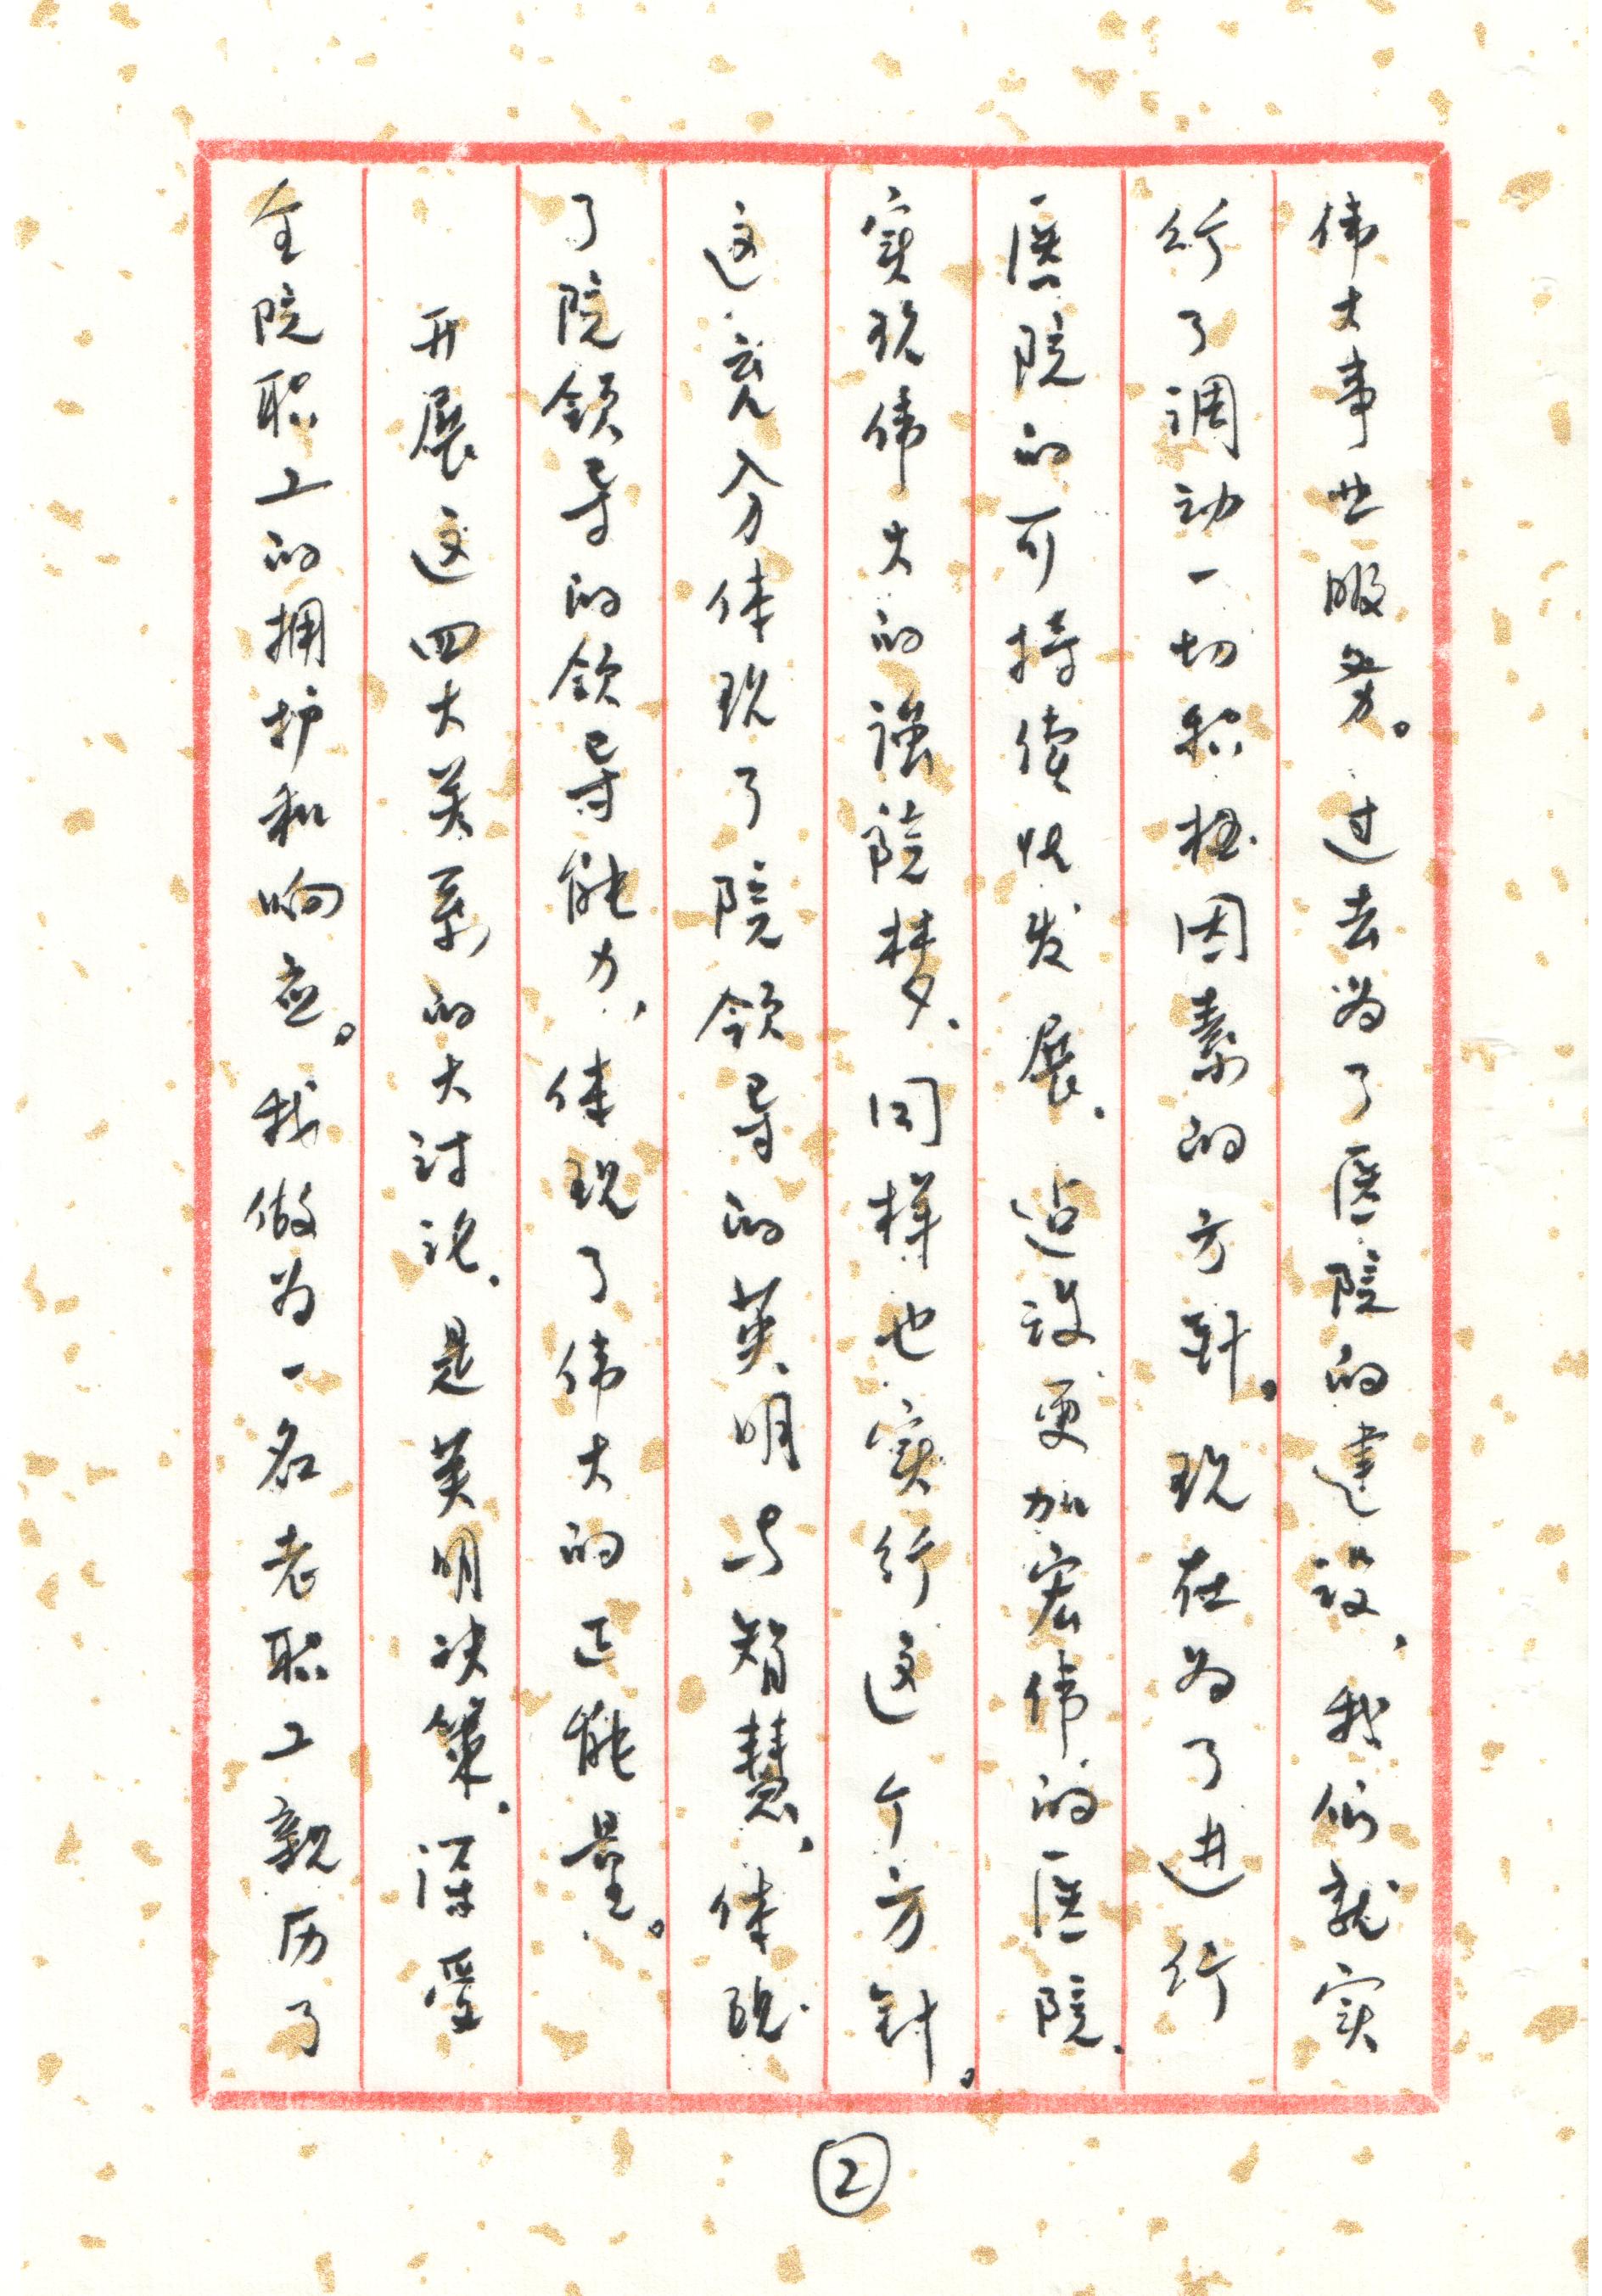 伟大事业服务。过去为了医院的建设，我们就实
行了调动一切积极因素的方针。现在为了进行
医院的可持续性发展，建设更加宏伟的医院，
实现伟大的强院梦，同样也实行这个方针。
这充分体现了院领导的英明与智慧，体现
了院领导的领导能力，体现了伟大的正能量。
开展这四大关系的大讨论，是英明决策，深受
全院职工的拥护和响应。我做为一名老职工亲历了
②